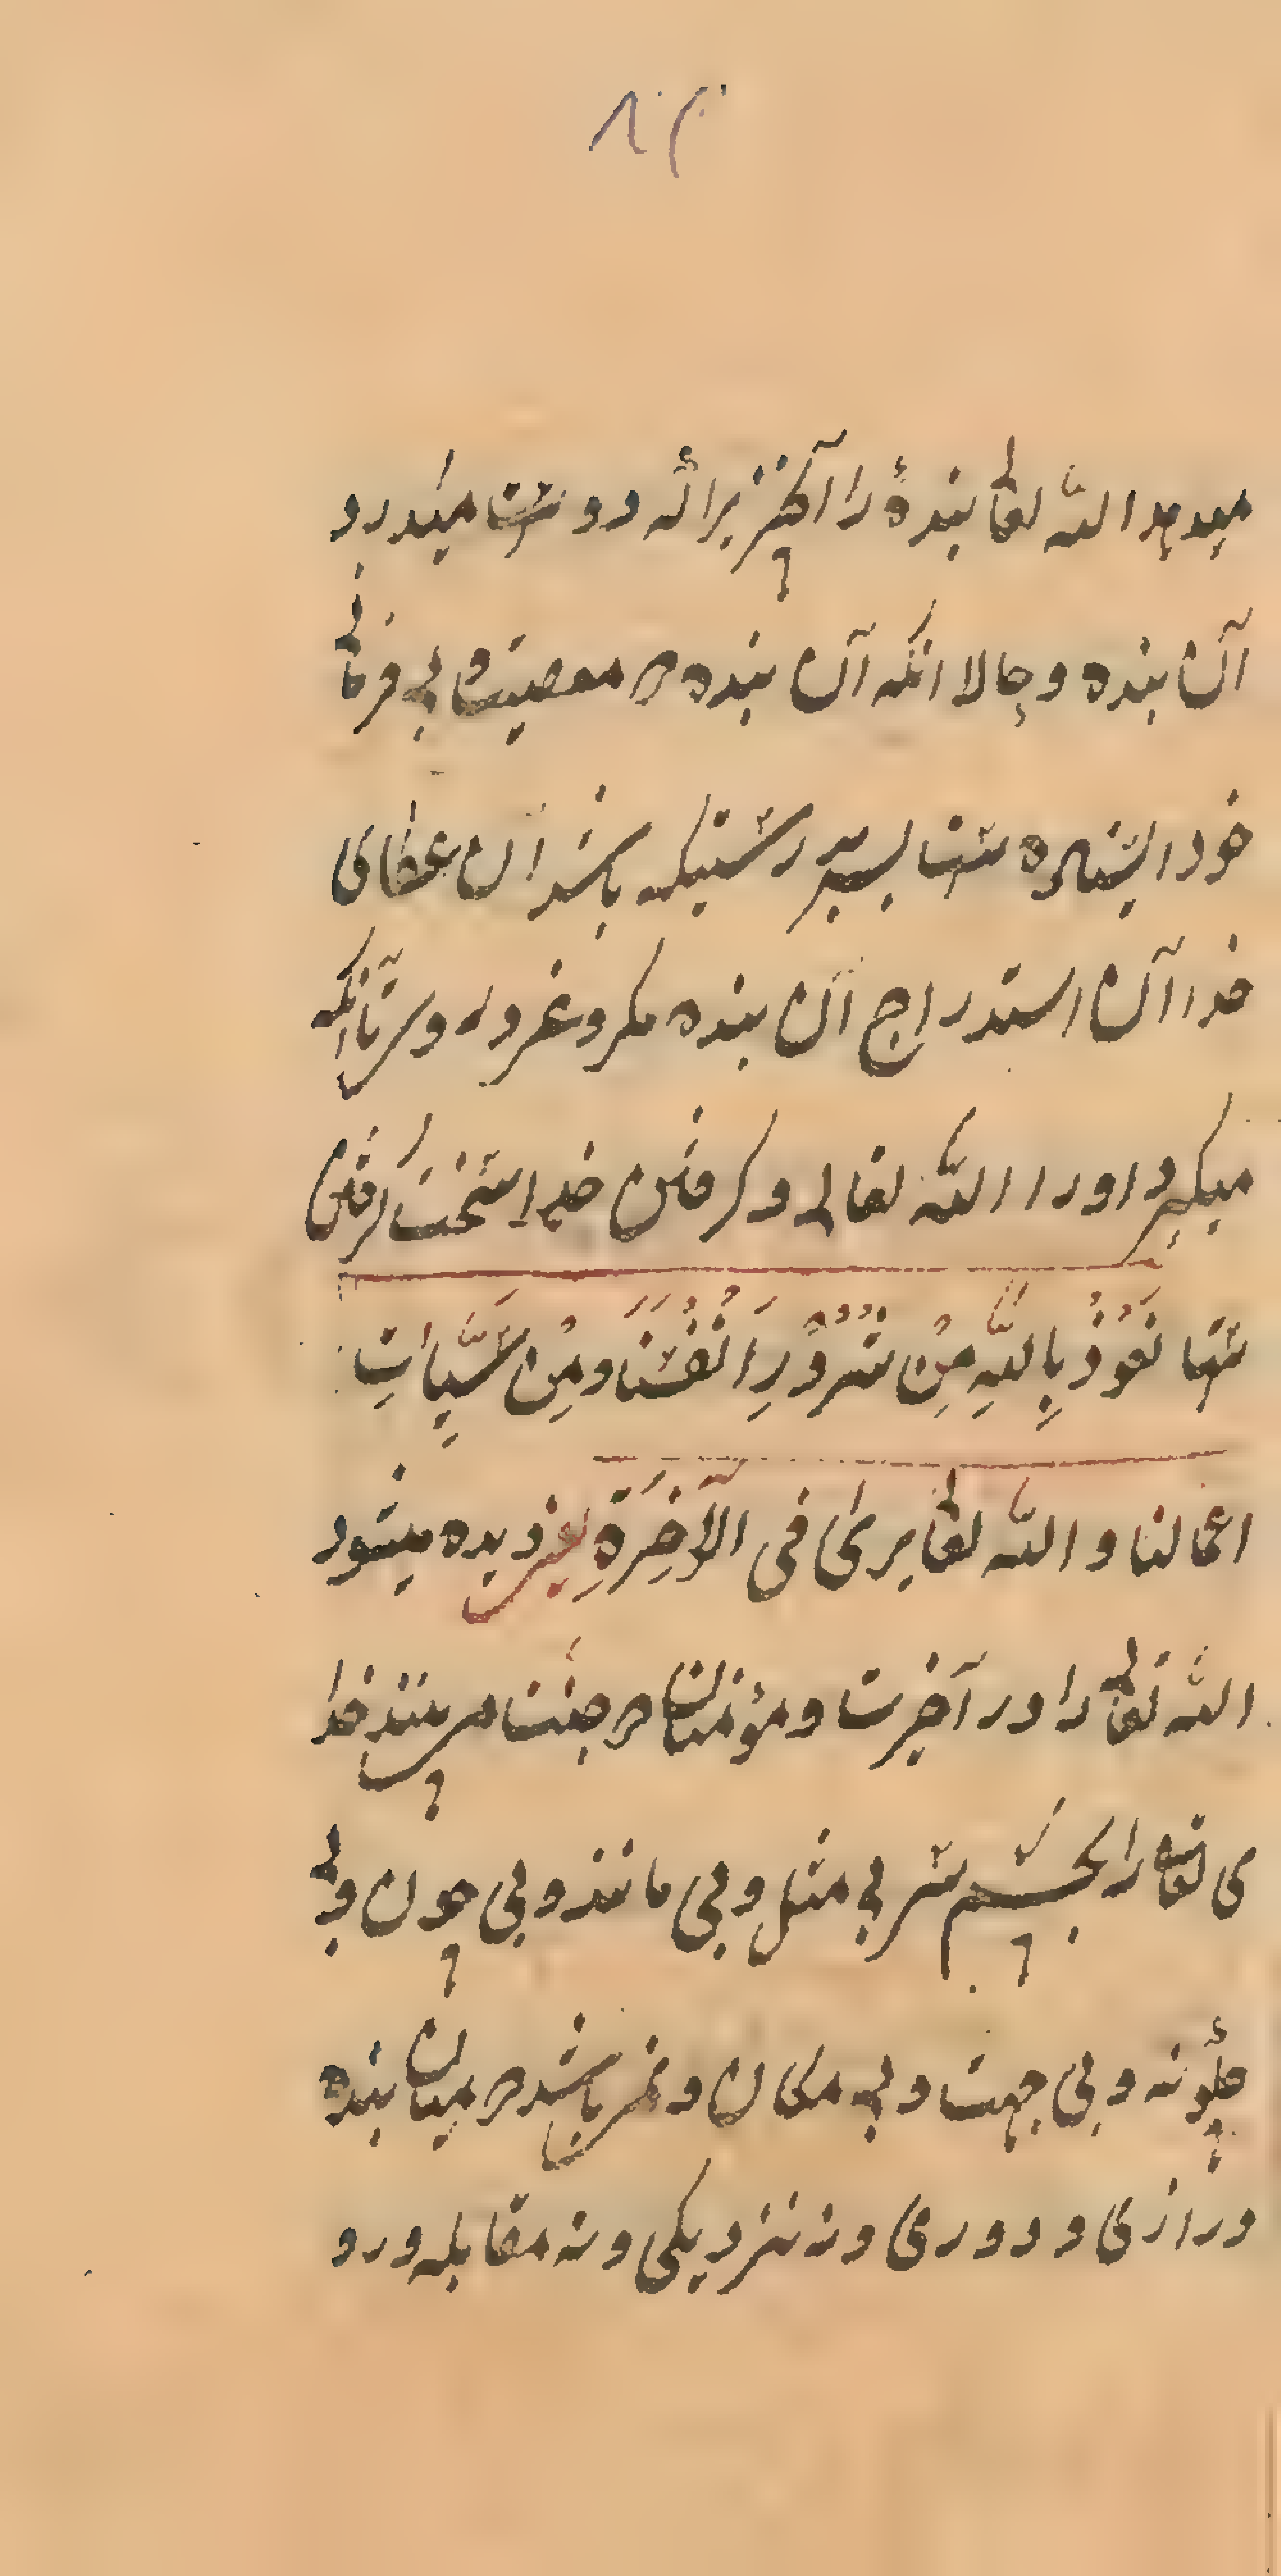 میدهد الله تعالی بندهٔ را آنچیز برائه دوست میدرد
آن بنده و حالا انکه آن بنده در معصیت و بی فرمانی
خود ایستاده است پس بدرستیکه باشد آن عطای
خدا آن استدراج آن بنده مکر و غرور و سر تا آنکه
میکیرد اورا الله تعالی و کرفتن خدا سخت کرفتن
ستها نَعُوذُ بِاللّٰهِ مِنْ شُرُوْرِ اَنْفُسِنَا وَمِنْ سَیِّاٰتِ
اعمالنا و الله تعالی یریٰ فی الآخِرَةِ یعنی دیده میشود
الله تعالی را در آخرت و مؤمنان در جنت می بینند خدا
ی تعالی را بچشم سر بی مثل و بی مانند و بی چون و بی
چگونه و بی جهت و بی مکان و نمی باشد در میان بنده
درازی و دوری و نه نزدیکی و نه مقابله و رو